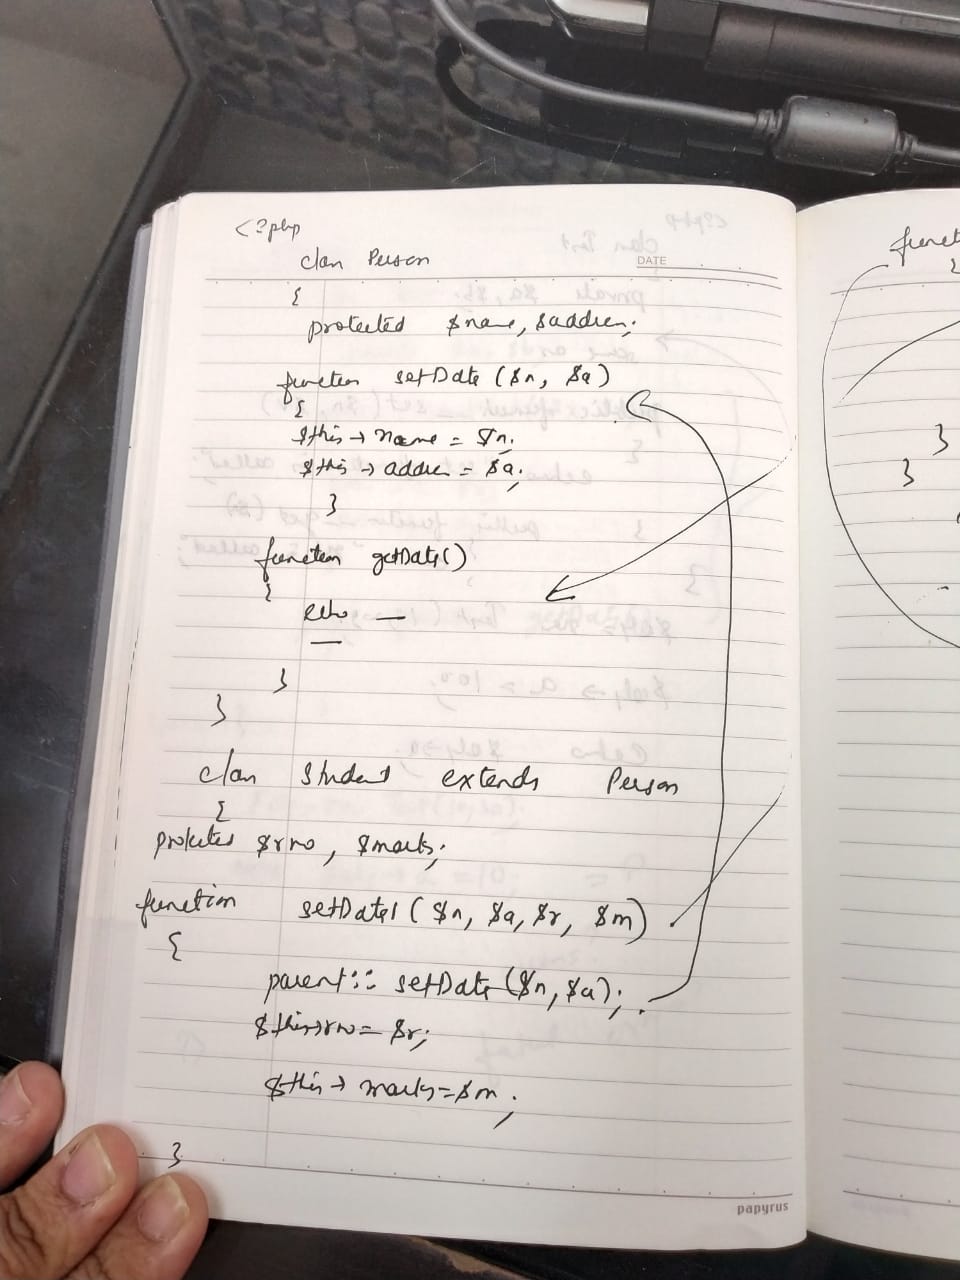 <?php
class Person
DATE
{
protected $name, $address;
function setData ($n, $a)
{
$this → name = $n;
$this → address = $a;
}
function getData()
{
echo —
—
}
}
class Student extends Person
{
protected $rno, $marks;
function setData1 ($n, $a, $r, $m)
{
parent:: setData ($n, $a);
$this→rno = $r;
$this → marks = $m;
}
papyrus
funct
{
}
}